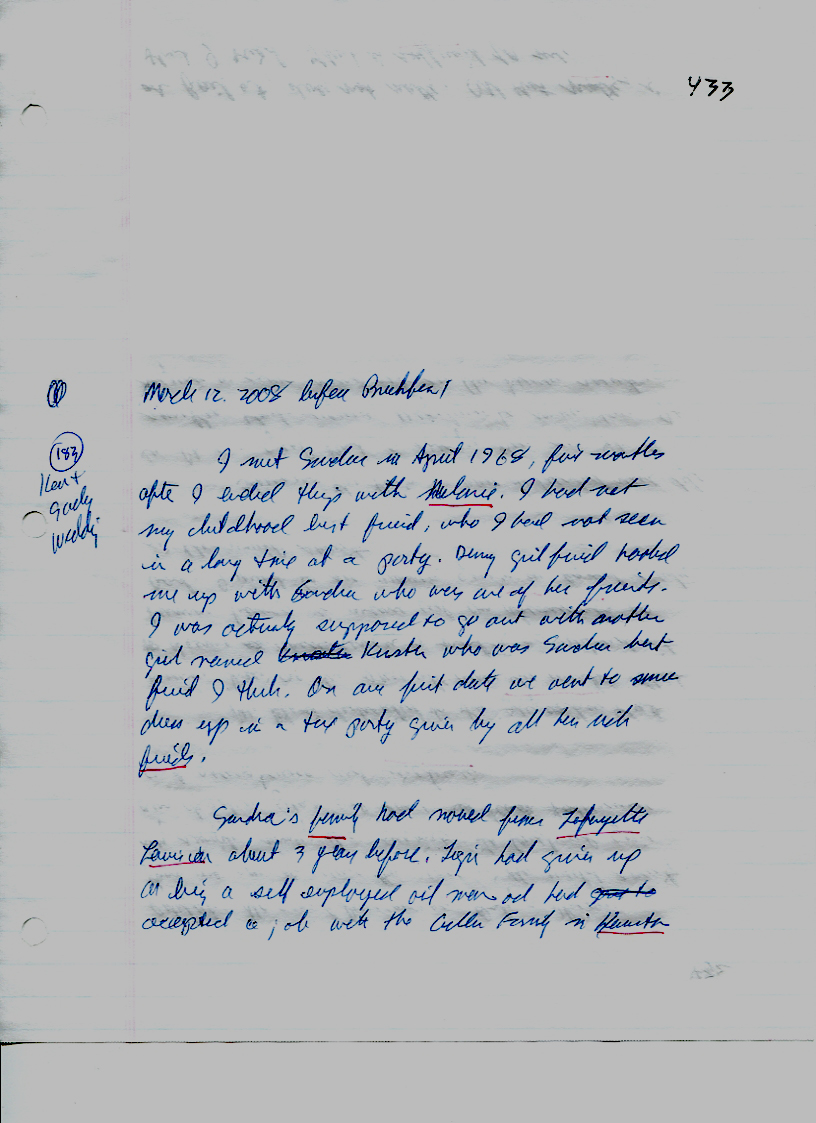 433
March 12. 2008 before Breakfast
183
Kent
Sandy
Wedding
I met Sandra in April 1968, four months
after I ended things with Melanie. I had met
my childhood best friend, who I had not seen
in a long time at a party. Denny girl friend hooked
me up with Sandra who was one of her friends.
I was actually supposed to go out with another
girl named Krista who was Sandra best
friend I think. On our first date we went to some
dress up in a tux party given by all her rich
friends.
Sandra's family had moved from Lafayette
Louisiana about 3 years before. had given up
on being a self employed oil man and had got to
accepted a job with the Cullen Family in Houston